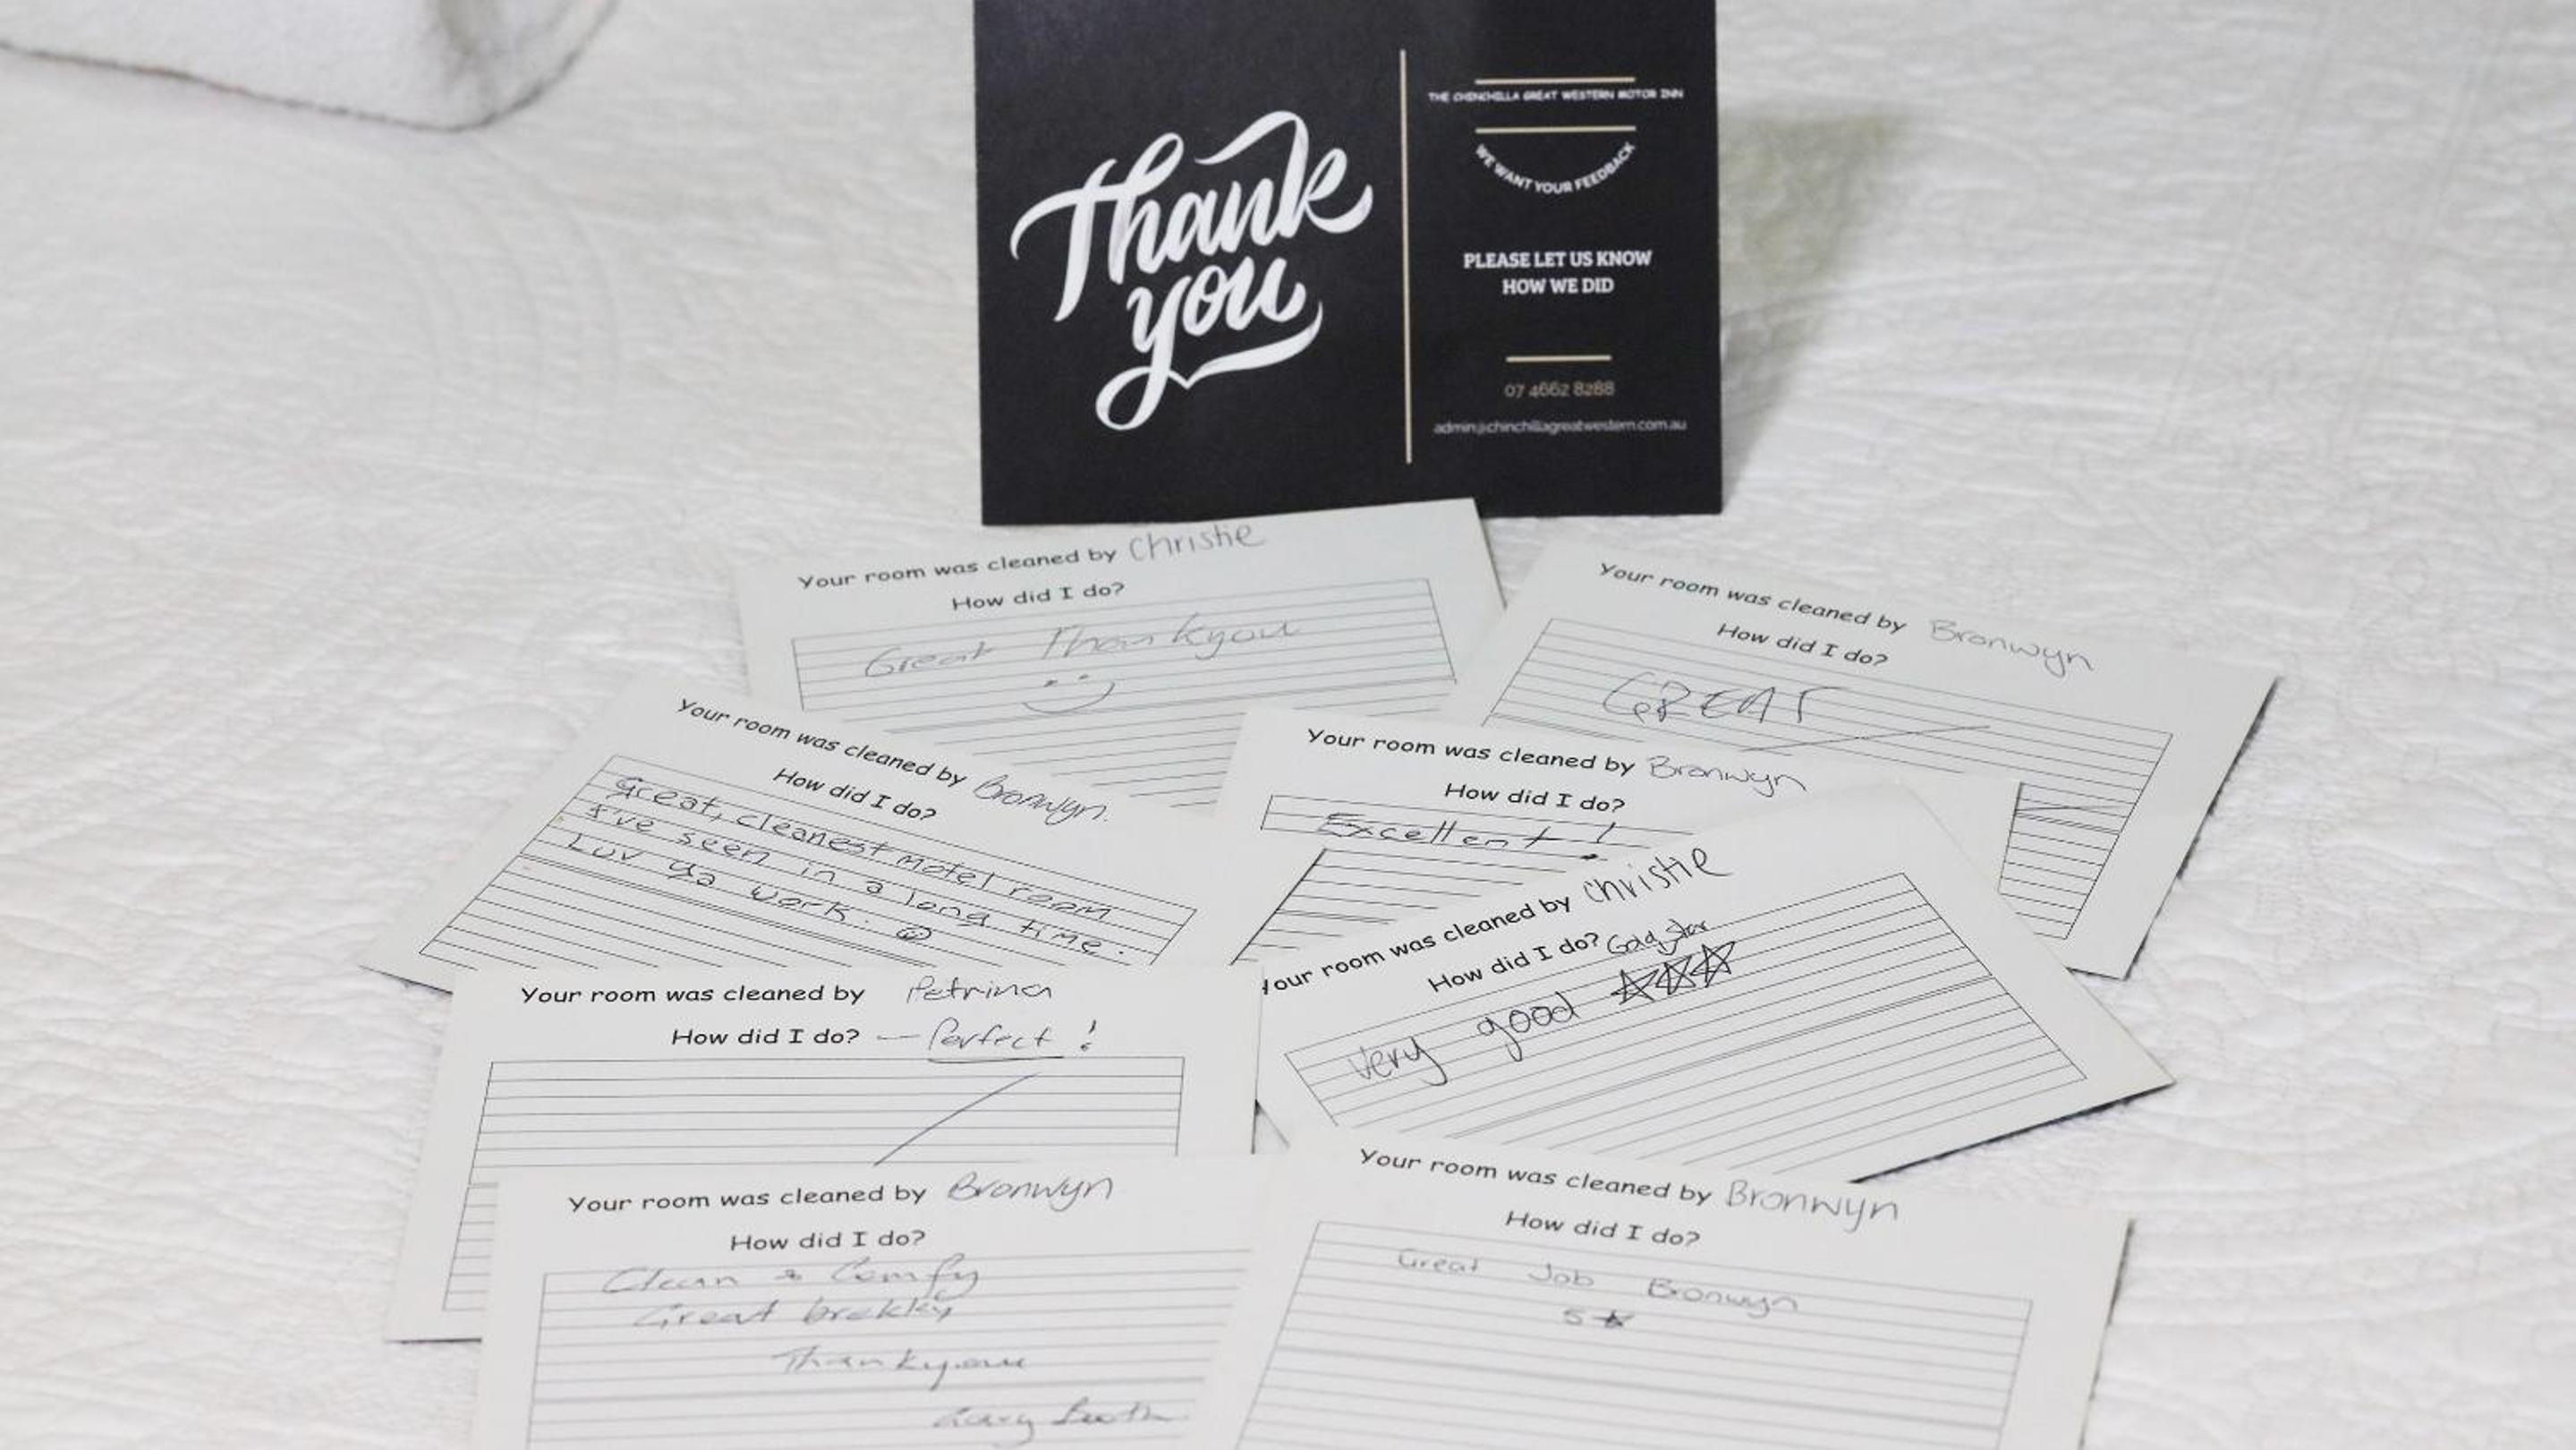 Thank
you
THE CHINCHILLA GREAT WESTERN MOTOR INN
WE WANT YOUR FEEDBACK
PLEASE LET US KNOW
HOW WE DID
07 4662 8288
admin@chinchillagreatwestern.com.au
Your room was cleaned by Christie
How did I do?
Great Thankyou
Your room was cleaned by Bronwyn
How did I do?
GREAT
Your room was cleaned by Bronwyn.
How did I do?
Great, cleanest motel room
I've seen in a long time.
Luv ya work.
Your room was cleaned by Bronwyn
How did I do?
Excellent!
Your room was cleaned by Christie
How did I do? Gold star
very good
Your room was cleaned by Petrina
How did I do? — Perfect!
Your room was cleaned by Bronwyn
How did I do?
Clean & Comfy
Great brekky
Thankyou
Your room was cleaned by Bronwyn
How did I do?
Great Job Bronwyn
5